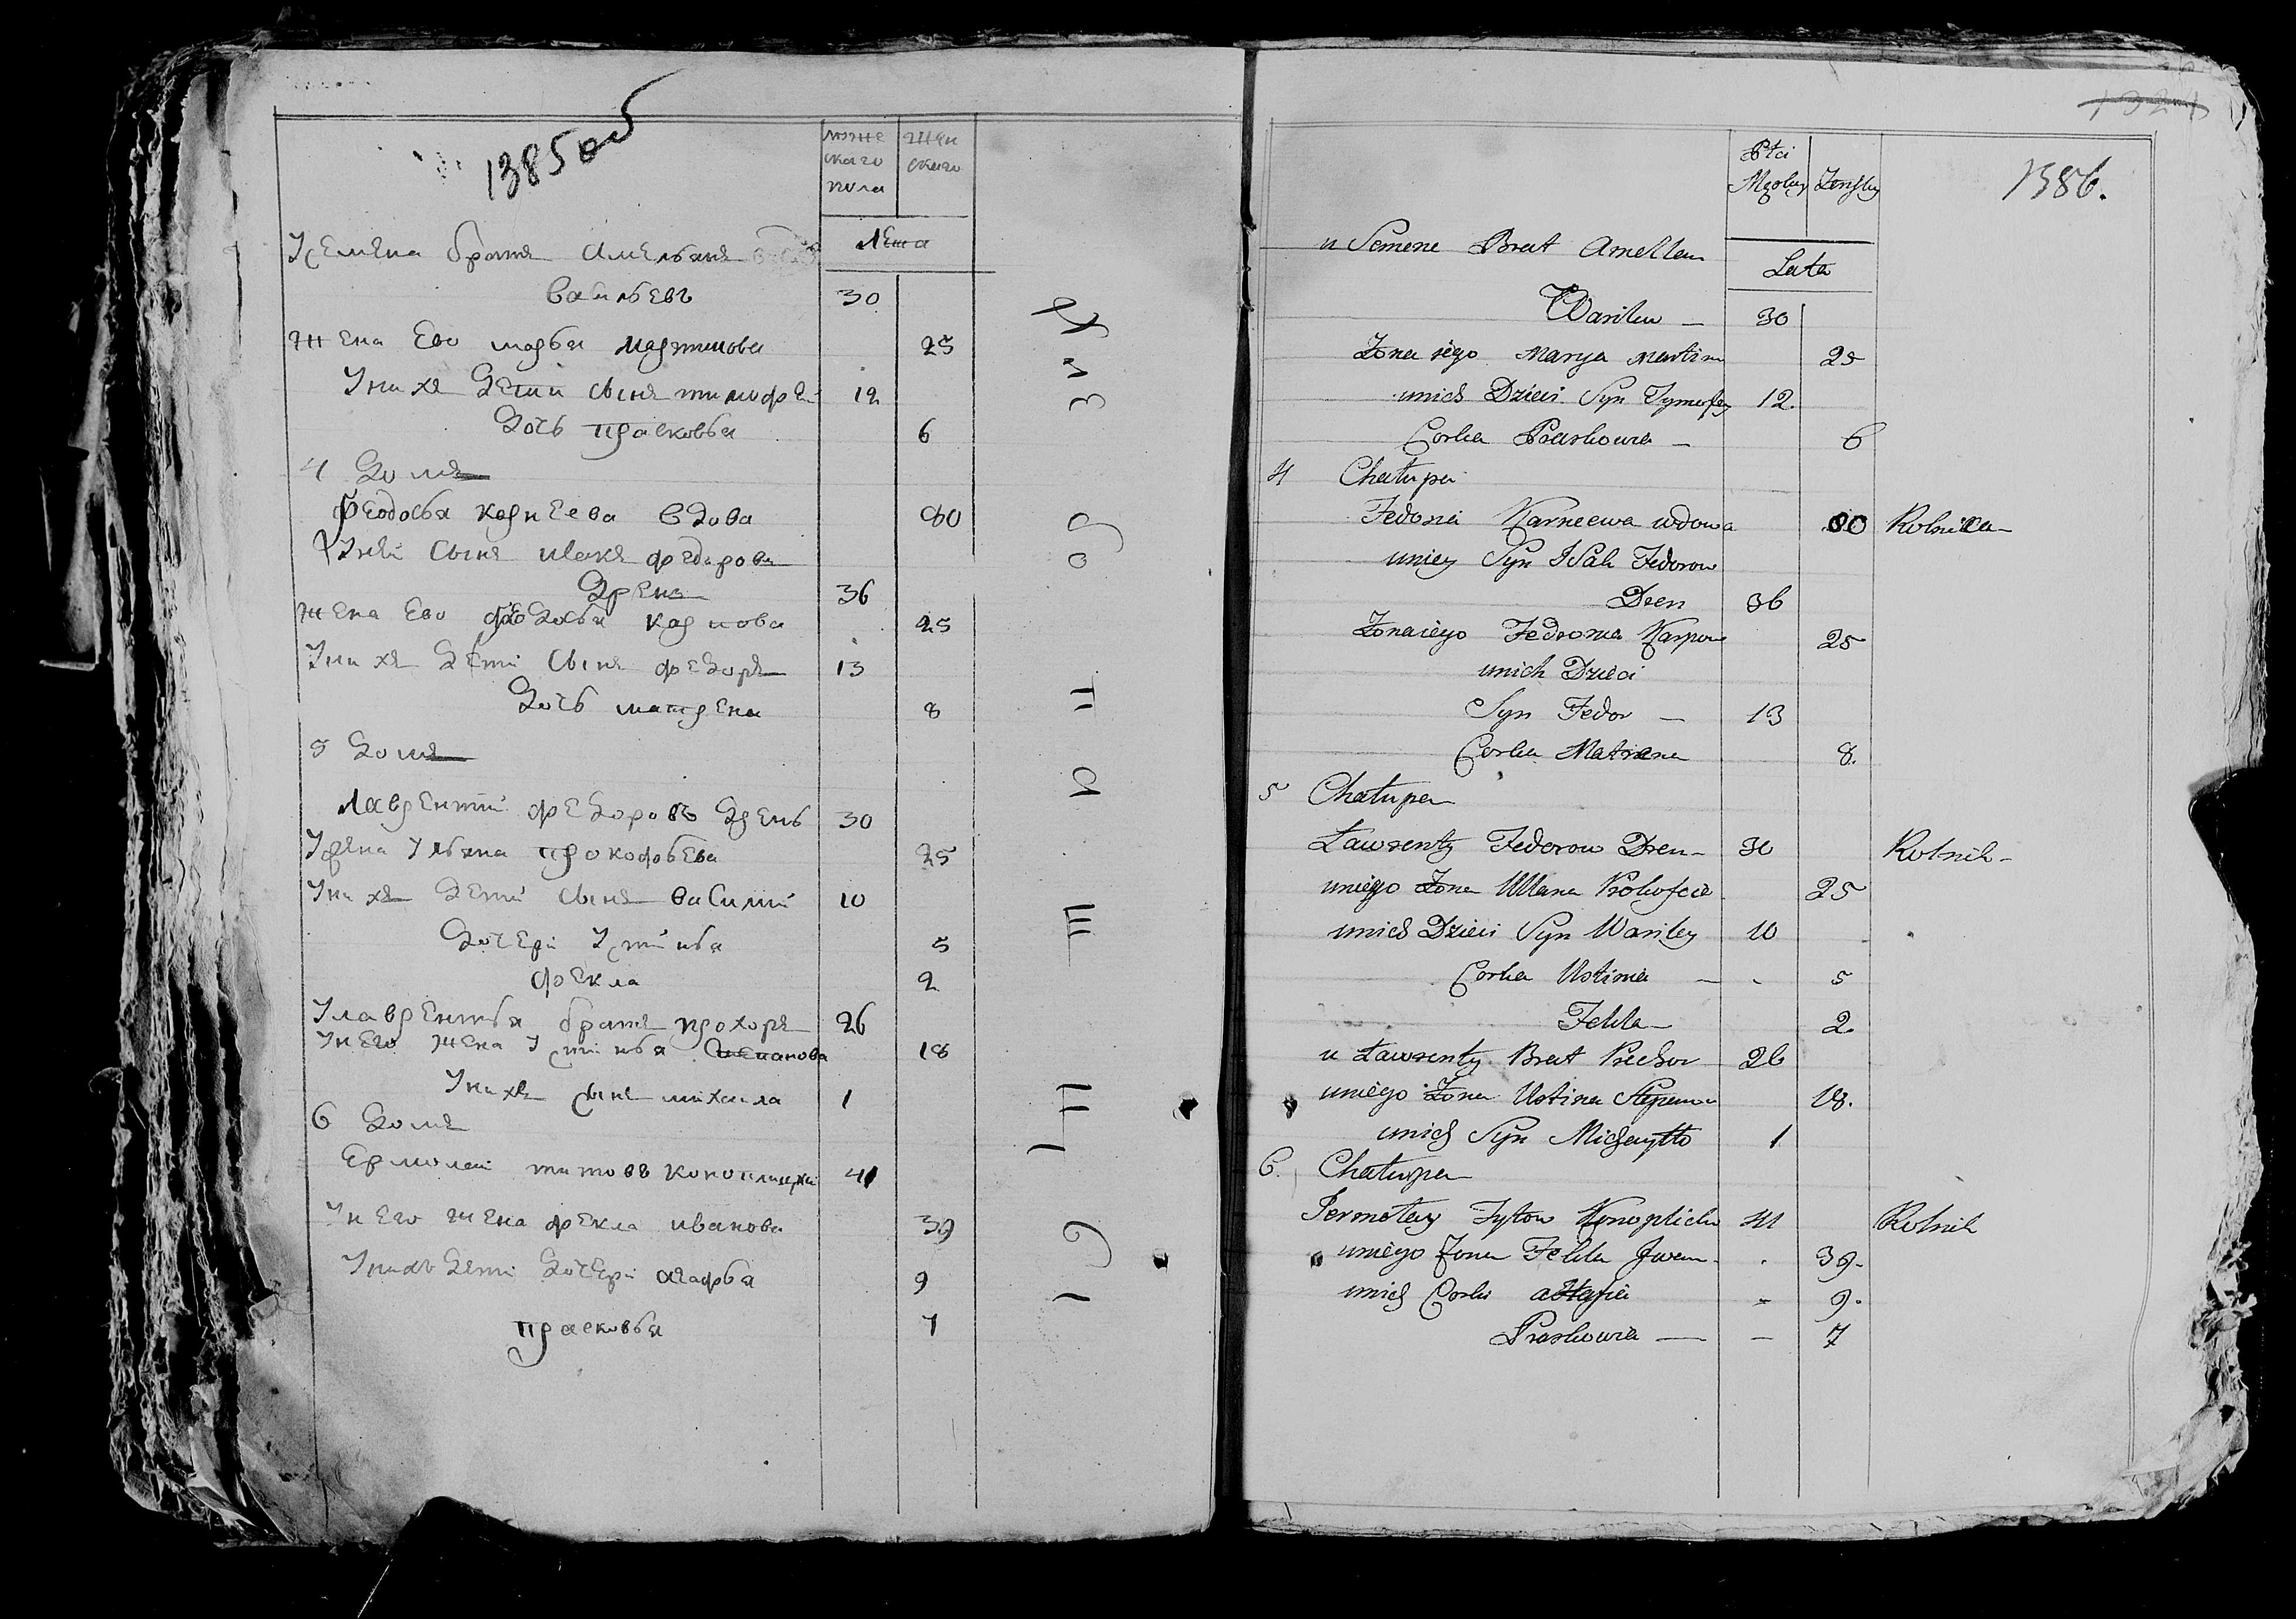 1385об
муже
скаго
пола
жен
скаго
Лета
Усемена братъ Амельянъ
Васильевъ 30
жена Ево марья мартинова 25
Унихъ дети сынъ тимофе 12
дочь прасковья 6
4 домъ
Феодосья карнеева вдова 80
Унеи сынъ исакъ федорова
Дрень 36
жена Ево федосья карпова 25
Унихъ дети сынъ федоръ 13
дочь матрена 8
5 домъ
Лаврентий федоровъ Дрень 30
Уевна Ульяна прокофьева 25
Унихъ дети сынъ василий 10
дочери Устинья 5
фекла 2
Улаврентья братъ прохоръ 26
Унего жена Устинья Степанова 18
Унихъ сынъ михаила 1
6 домъ
Ермолаи титовъ 41
Унего жена фекла иванова 39
Унихъ дети дочери агафья 9
прасковья 7
1386.
Płci
Męskiey Żeńskiey
Lata
u Semena Brat Amelian
Wasilew — 30
Żona iego Marya Martin 25
unich Dzieci Syn Tymofey 12.
Corka Praskowia — 6
4 Chałupa
Fedosia Karneewa wdowa 80 Rolniczka
uniey Syn Isak Fedorow
Dren 36
Żona iego Fedosia Karpow 25
unich Dzieci
Syn Fedor — 13
Corka Matrena 8.
5 Chałupa
Ławrenty Fedorow Dren 30 Rolnik
uniego Żona Uliana Prokofeia 25
unich Dzieci Syn Wasiley 10
Corka Ustinia — 5
Fekla 2
u Ławrenty Brat Prochor 26
uniego Żona Ustina Stepanow 18.
unich Syn Michayło 1
6. Chałupa
Jermołay Tytow Konoplicki 41 Rolnik
uniego Żona Fekla Iwan. 39.
unich Corki 9.
Praskowia — — 7